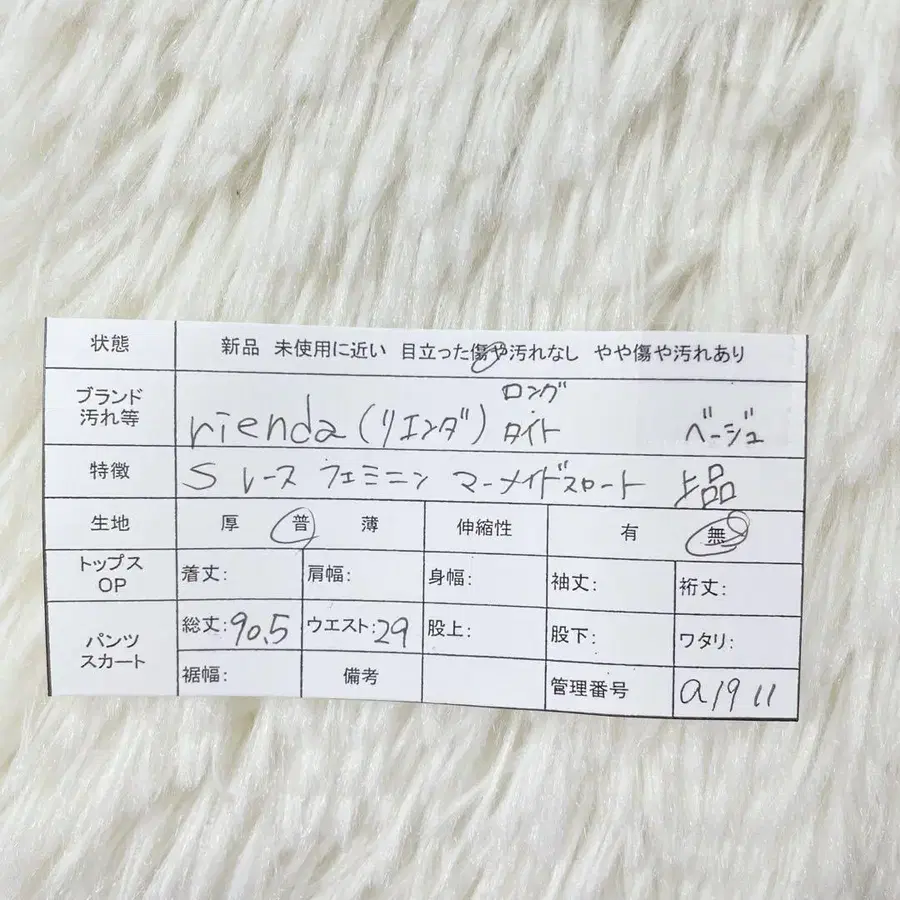 状態 新品 未使用に近い 目立った傷や汚れなし やや傷や汚れあり
ロング
ブランド
汚れ等 rienda(リエンダ) タイト ベージュ
特徴 S レース フェミニン マーメイドスカート 上品
生地 厚 普 薄 伸縮性 有 無
トップス
OP 着丈: 肩幅: 身幅: 袖丈: 裄丈:
パンツ
スカート 総丈:90.5 ウエスト:29 股上: 股下: ワタリ:
裾幅: 備考 管理番号 a1911